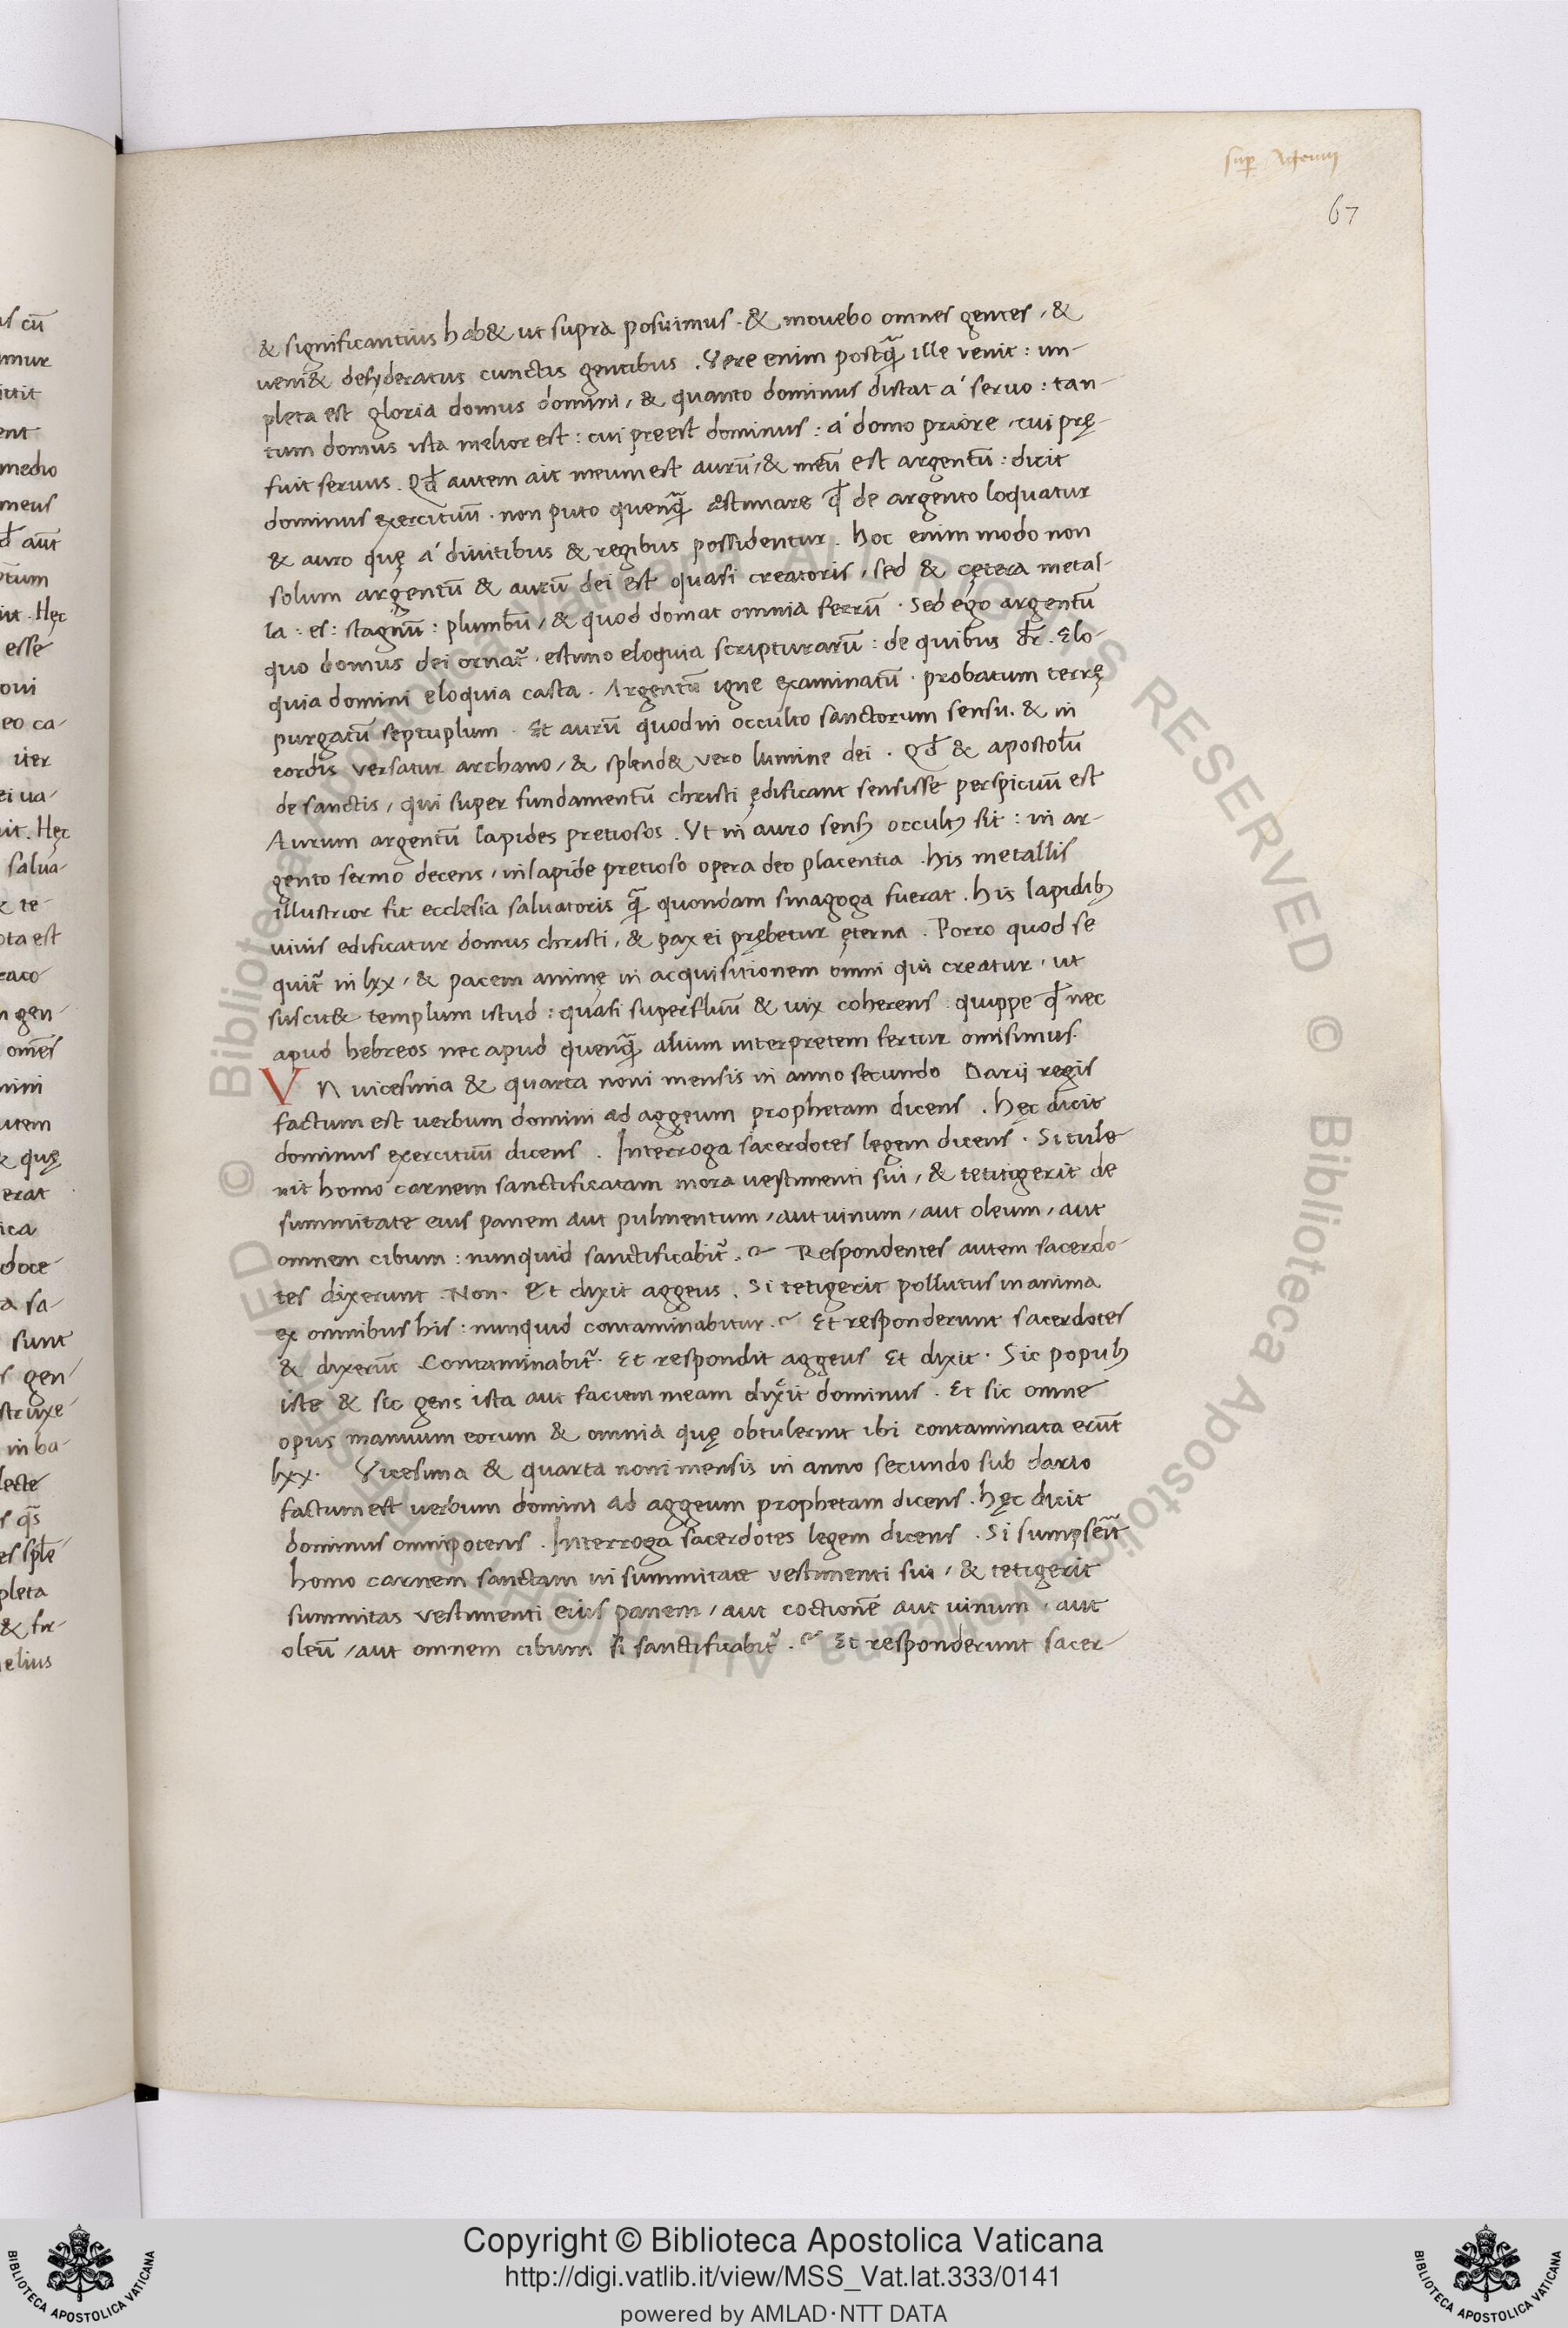 67
& significantius hab& ut supra posuimus . & mouebo omnes gentes , &
ueni& desyderatus cunctis gentibus . Vere enim postq̃ ille venit : im-
pleta est gloria domus domini , & quanto dominus distat a´ seruo : tan-
tum domus ista melior est : cui preest dominus : a´ domo priore , cui prę-
fuit seruus . Qđ autem ait meum est aurū , & meū est argentū : dicit
dominus exercituū . non puto quenq̃ estimare qđ de argento loquatur
& auro quę a´ diuitibus & regibus possidentur . hoc enim modo non
solum argentū & aurū dei est quasi creatoris , sed & cętera metal-
la : es : stagnū : plumbū , & quod domat omnia ferrū . Sed ego argentū
quo domus dei ornat᷑ . estimo eloquia scripturarū : de quibus dr̄ . Elo-
quia domini eloquia casta . Argentū igne examinatū . probatum terrę
purgatū septuplum . Et aurū quod in occulto sanctorum sensu . & in
cordis versatur archano , & splend& vero lumine dei . Qđ & apostolū
de sanctis , qui super fundamentū christi ędificant sensisse perspicuū est
Aurum argentū lapides pretiosos . Vt in auro sensꝰ occultꝰ sit : in ar-
gento sermo decens , in lapide pretioso opera deo placentia . his metallis
illustrior fit ecclesia saluatoris q̃ quondam sinagoga fuerat . his lapidibꝰ
uiuis edificatur domus christi , & pax ei prębetur ęterna . Porro quod se
quit᷑ in lxx , & pacem animę in acquisitionem omni qui creatur , ut
suscit& templum istud : quasi superfluū & uix coherens : quippe qđ nec
apud hebreos nec apud quenq̃ alium interpretem fertur omisimus .
V N uicesima & quarta noni mensis in anno secundo Darij regis
factum est uerbum domini ad aggeum prophetam dicens . hęc dicit
dominus exercituū dicens . Interroga sacerdotes legem dicens . Si tule
rit homo carnem sanctificatam in ora uestimenti sui , & tetigerit de
summitate eius panem aut pulmentum , aut uinum , aut oleum , aut
omnem cibum : nunquid sanctificabit᷑ . Respondentes autem sacerdo-
tes dixerunt . Non . Et dixit aggeus . Si tetigerit pollutus in anima
ex omnibus his : nunquid contaminabitur . Et responderunt sacerdotes
& dixerūt Contaminabit᷑ . Et respondit aggeus Et dixit . Sic populꝰ
iste & sic gens ista aut faciem meam dixit dominus . Et sic omne
opus manuum eorum & omnia quę obtulerint ibi contaminata erūt
lxx . Vicesima & quarta noni mensis in anno secundo sub dario
factum est uerbum domini ad aggeum prophetam dicens . hęc dicit
dominus omnipotens . Interroga sacerdotes legem dicens . Si
homo carnem sanctam in summitate vestimenti sui , & tetigerit
summitas vestimenti eius panem , aut coctionē aut uinum , aut
oleū , aut omnem cibum si sanctificabit᷑ . Et responderunt sacer-
Copyright © Biblioteca Apostolica Vaticana
http://digi.vatlib.it/view/MSS_Vat.lat.333/0141
powered by AMLAD·NTT DATA
BIBLIOTECA APOSTOLICA VATICANA
BIBLIOTECA APOSTOLICA VATICANA